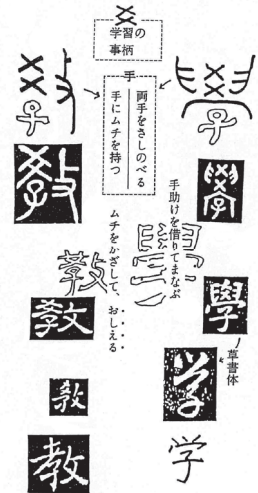 爻
学習の
事柄
手
両手をさしのべる
手にムチを持つ
學
敎
手助けを借りてまなぶ
ムチをかざして、おしえる
學
敎
學
敎
草書体
学
教
学
教